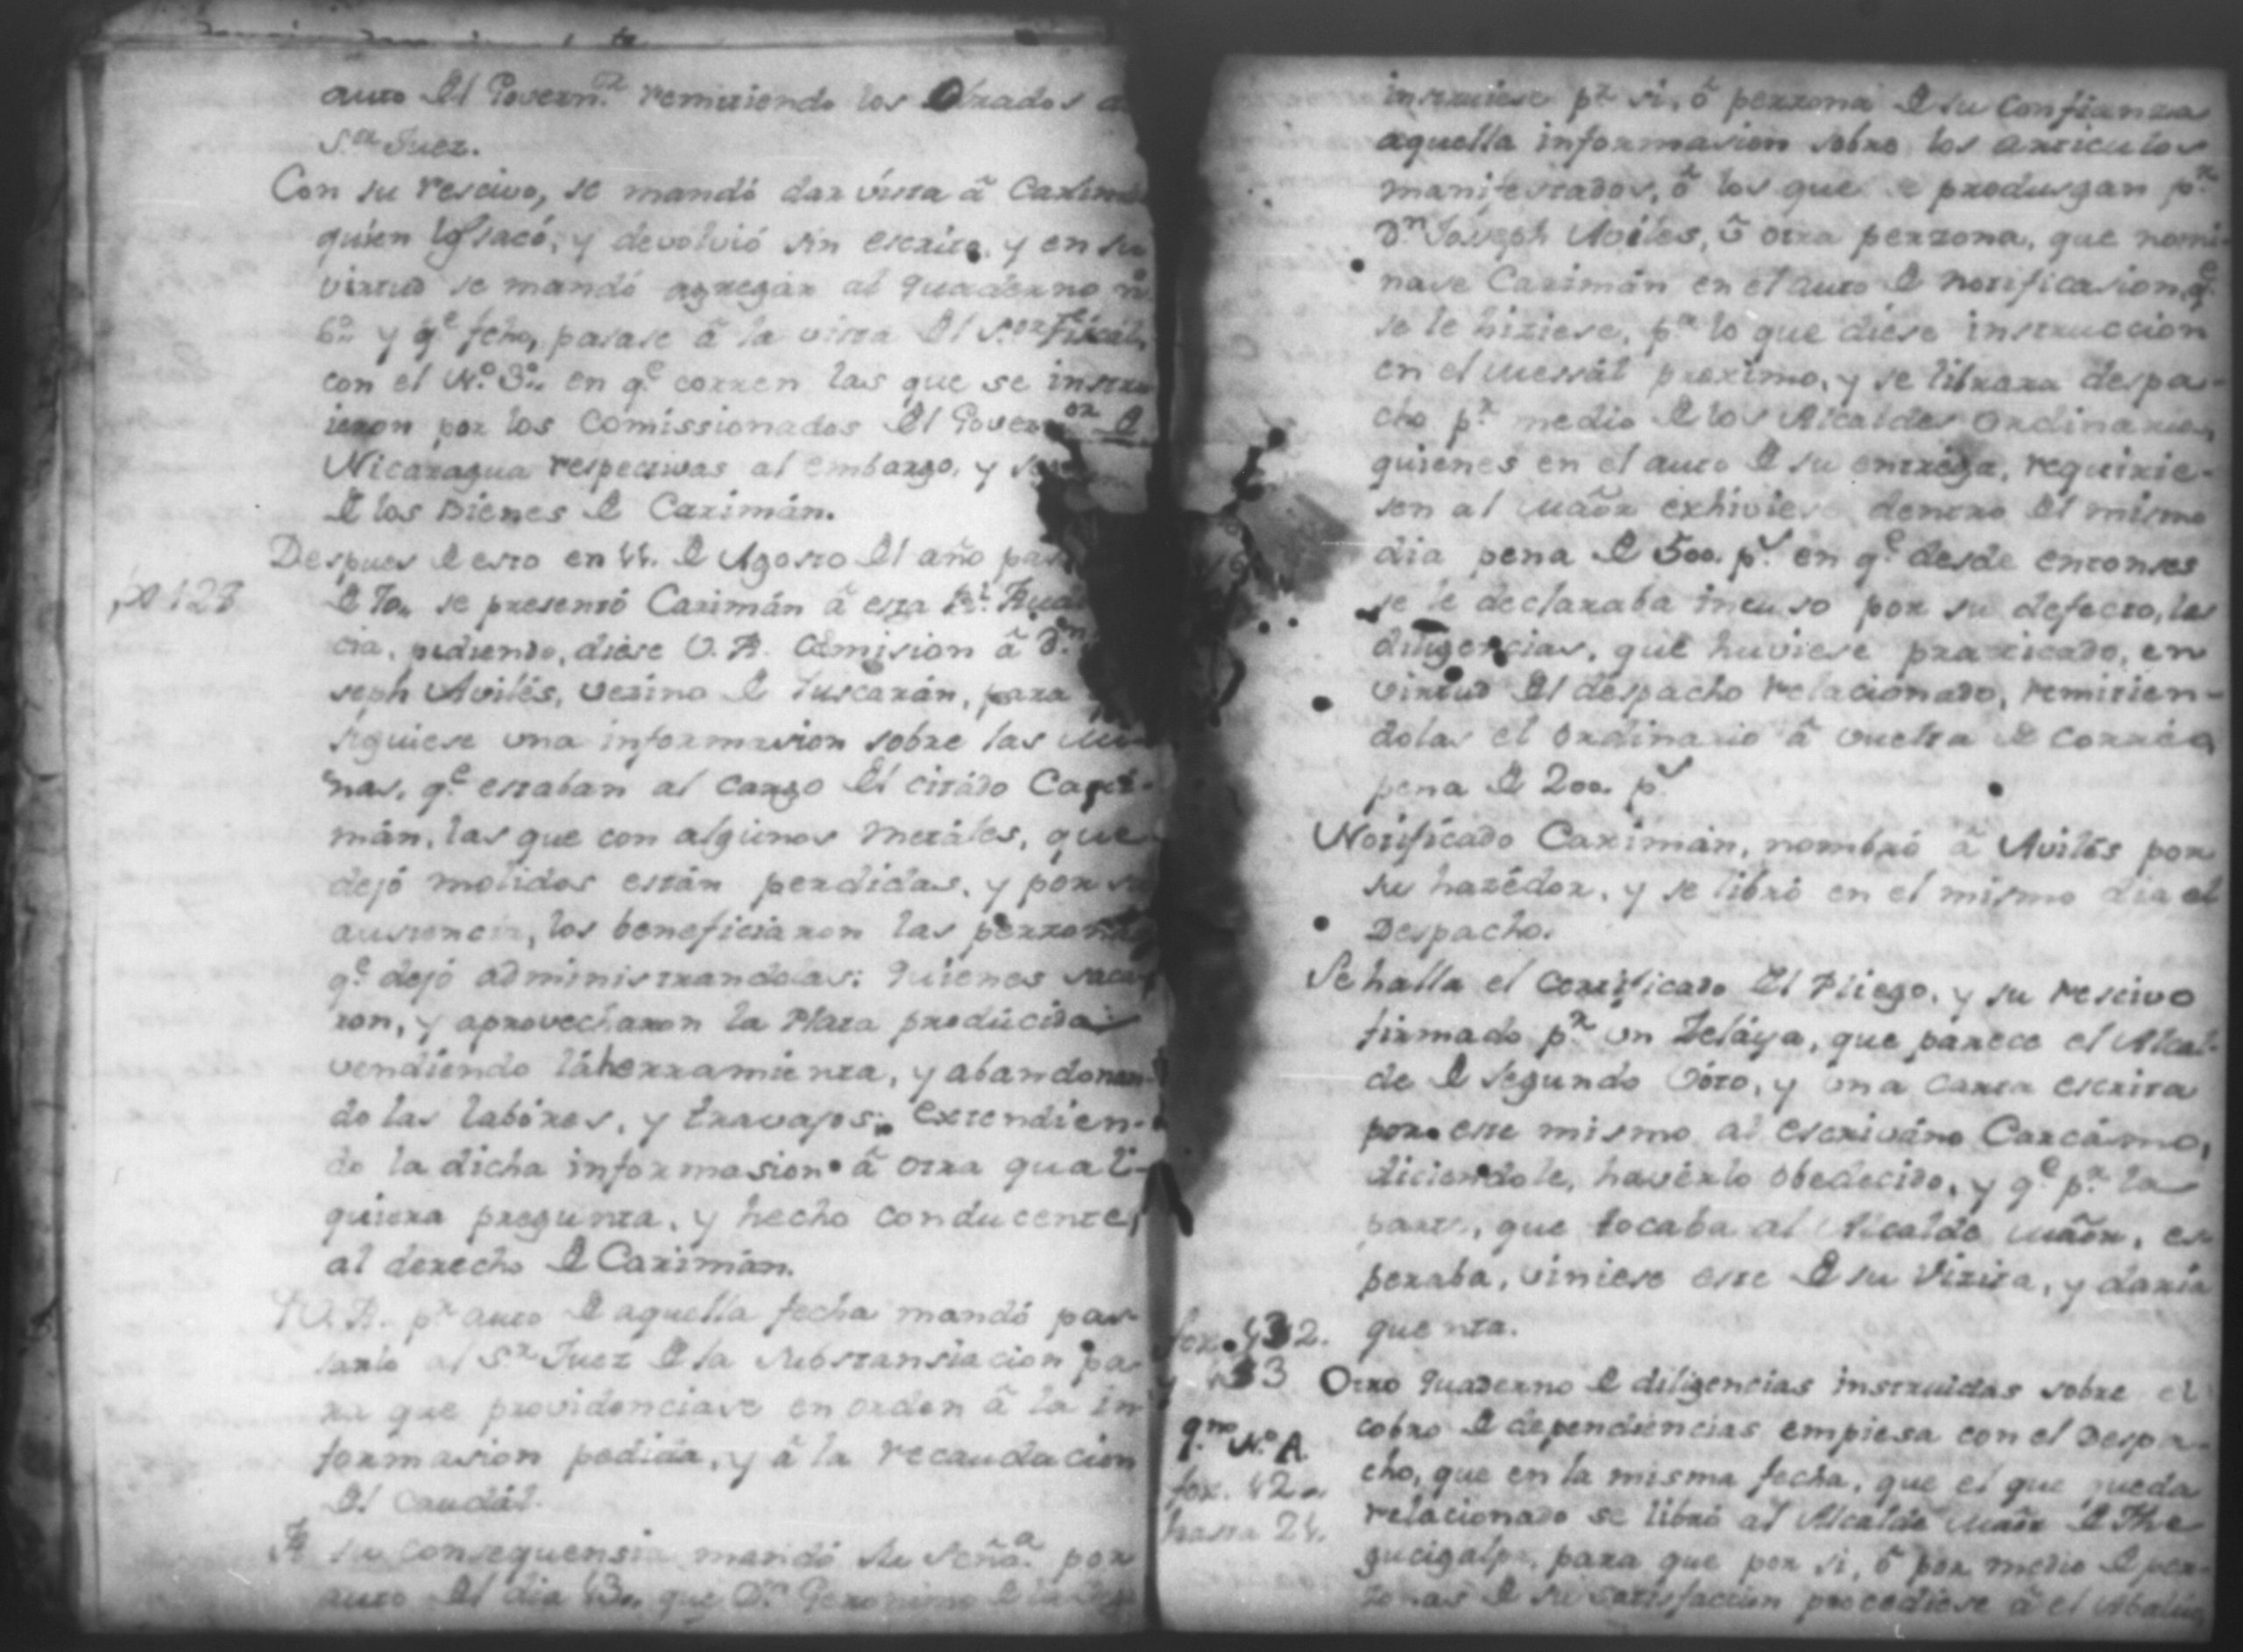 auto del Govern.or remitiendo los Obrados a
S.or Juez.
Con su rescivo, se mandó dar vista â Carimán
quien los sacó, y devolvió sin escrito, y en su
virtud se mandó agregar al quaderno n.
6.o y q.e fcho, pasase â la vista del S.or Fiscal,
con el N.o 3.o en q.e corren las que se instru
ieron por los Comissionados del Govern.or de
Nicaragua respectivas al embargo, y
de los Bienes de Carimán.
Despues de esto en 11. de Agosto del año pas
fo 128
de 70,, se presentó Carimán â esta R.l Aud
cia, pidiendo, diese V.A. Comision â D.n
seph Avilés, vezino de Yuscarán, para
siguiese una informasion sobre las Mi-
nas, q.e estaban al cargo del citádo Cari-
mán, las que con algunos metáles, que
dejó molidos están perdidas, y por su
ausencia, los beneficiaron las perzonas
q.e dejó administrandolas: quienes saca
ron, y aprovecharon la Plata prodúcida
vendiendo la herramienta, y abandonan-
do las labóres, y travajos: extendien-
do la dicha informasion â otra quali-
quiera pregunta, y hecho conducente,
al derecho de Carimán.
V.A. p.r auto de aquella fecha mandó pas-
sarlo al S.r Juez de la substansiacion pa-
ra que providenciase en orden â la in
formasion pedida, y â la recaudacion
del caudál.
A su consequensia mandó su Señor.a por
auto del dia 13,, que D.n Geronimo de la
instruiese p.r si, ô perzona de su confianza
aquella informasion sobre los articulos
manifestados, ô los que se produsgan p.r
D.n Joseph Aviles, û otra perzona, que nomi-
nase Carimán en el auto de notificasion, q.e
se le hiziese, p.a lo que diese instruccion
en el Messál proximo, y se librara despa-
cho p.r medio de los Alcaldes Ordinarios,
quienes en el auto de su entrega, requirie-
sen al Maôr exhiviese dentro del mismo
dia pena de 500. p.s en q.e desde entonses
se le declaraba incuso por su defecto, las
diligencias, que huviese practicado, en
virtud del despacho relacionado, remitien-
dolas el Ordinario â vuelta de corréo,
pena de 200. p.s
Notificado Carimán, nombró â Avilés por
su hazédor, y se libró en el mismo dia el
Despacho.
Se halla el certificado del Pliego, y su rescivo
firmado p.r un Zeláya, que parece el Alcal-
de de segundo Vóto, y una carta escrita
por este mismo al escriváno Carcámo,
diciendole, havérlo obedecido, y q.e p.r la
parte, que tocaba al Alcalde Maôr, es-
peraba, viniese este de su Vizita, y daria
quenta.
fox. 132.
y 133
q.no N.o A.
fox. 12.
hasta 21.
Otro quaderno de diligencias instruidas sobre el
cobro de dependiencias empiesa con el Despa-
cho, que en la misma fecha, que el que queda
relacionado se libró al Alcalde Maôr de The
gucigalpa, para que por si, ô por medio de per-
zonas de su satisfaccion procediese â el